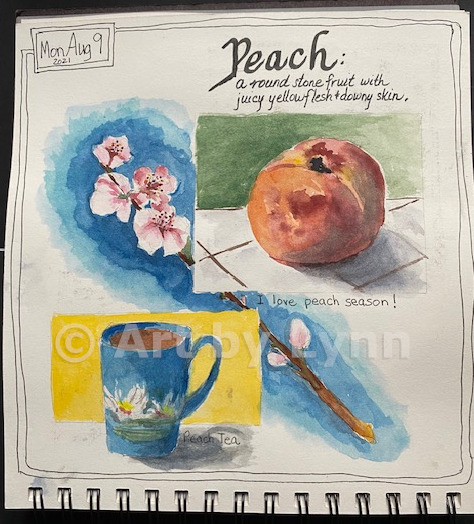 Mon Aug 9
2021
Peach:
a round stone fruit with
juicy yellow flesh + downy skin.
I love peach season!
© Art by Lynn
Peach Tea